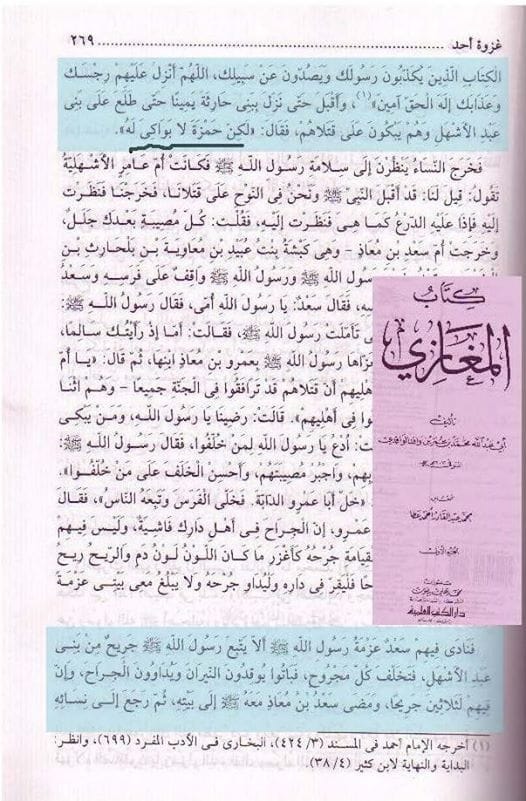 غزوة أحد ............ ٢٦٩
الكتاب الَّذين يُكذّبون رَسُولك ويَصدّون عَنْ سبيلك، اللّهُمّ أنْزِل عَلَيهِم رِجْسَكَ
وعَذَابَك إلَه الحَقّ آمين»(١)، وأقبل حَتى نَزل بِبَنى حَارثَة يمينا حَتى طَلَع عَلى بَنى
عَبد الأشهل وهُمْ يبكُون عَلى قتلاهُم، فقال: «لَكِنْ حَمْزَة لا بوَاكى لَهُ».
فَخرج النّساءُ ينظُرنَ إلى سلامة رَسول اللَه ﷺ فَكانتْ أمّ عَامر الأشهليّة
تَقولُ: قيلَ لَنا: قَد أقبل النّبى ﷺ ونَحنُ فى النّوحِ عَلى قَتلانا، فخرَجنَا فَنظرت
إليه فإذا عَليه الدّرعُ كمَا هى فَنظرَت إليه، فَقلتُ: كُلّ مُصيبة بَعدكَ جَللٌ،
وخرجت أمّ سَعد بن مُعاذ – وهى كبشةُ بنت عُبيد بن مُعاوية بن بلحَارث بن
رَسول اللَه ﷺ ورَسولُ اللَه ﷺ واقفٌ عَلى فرسه وسَعدُ
فقال سَعدٌ: يا رَسول اللَه، أمّى، فقالَ رسُول اللَه ﷺ:
تأملَت رَسول اللَه ﷺ، فقالت: أمَا إذ رَأيتكَ سَالما،
رسُول اللَه ﷺ بعَمرو بن مُعاذ ابنها، ثمّ قال: «يا أمّ
أهليهم أنّ قَتلاهُم قَد تَرافقُوا فى الجنّة جَميعا – وهُم اثنا
فى أهليهم». قالت: رَضينَا يا رَسول اللَه، ومَن يَبكى
ادْعُ يا رَسول اللَه لمن خُلّفُوا، فقَال رسُول اللَه ﷺ:
واجبُر مُصيبتَهُم، وأحسِن الخَلَفَ عَلى مَن خُلّفُوا».
«خَلّ أبا عَمرو الدّابّة. فَخَلّى الفَرس وتَبعهُ النّاسُ»، فَقال
عمرو، إنّ الجرَاح فى أهْل دَارك فَاشيةٌ، ولَيس فيهم
القيامة جُرحُه كأغزَر مَا كان اللّونُ لَونُ دم والرّيح ريحُ
فَليقرّ فى دَاره ولْيُدَاو جُرْحَهُ ولا يَبلُغ مَعى بَيتى عَزمَةٌ
فنادى فيهم سَعدٌ عزمَةُ رَسول اللَه ﷺ ألا يتبع رَسول اللَه ﷺ جَريحٌ من بَنى
عَبد الأشهل، فتخلّف كلّ مَجروح، فَباتُوا يوقدون النيران ويُداوون الجراح، وإنّ
فيهم لثلاثين جريحًا، ومَضى سَعدُ بن مُعاذ مَعهُ ﷺ إلى بَيته، ثمّ رَجع إلى نسائه
(١) أخرجه الإمام أحمد فى المسند (٤٢٤/٣)، البخارى فى الأدب المفرد (٦٩٩)، وانظر:
البداية والنهاية لابن كثير (٣٨/٤)
كتاب
المغازي
تأليف
أبي عبد الله محمد بن عمر بن واقد الواقدي
تحقيق
محمد عبد القادر أحمد عطا
الجزء الأول
منشورات
محمد علي بيضون
دار الكتب العلمية